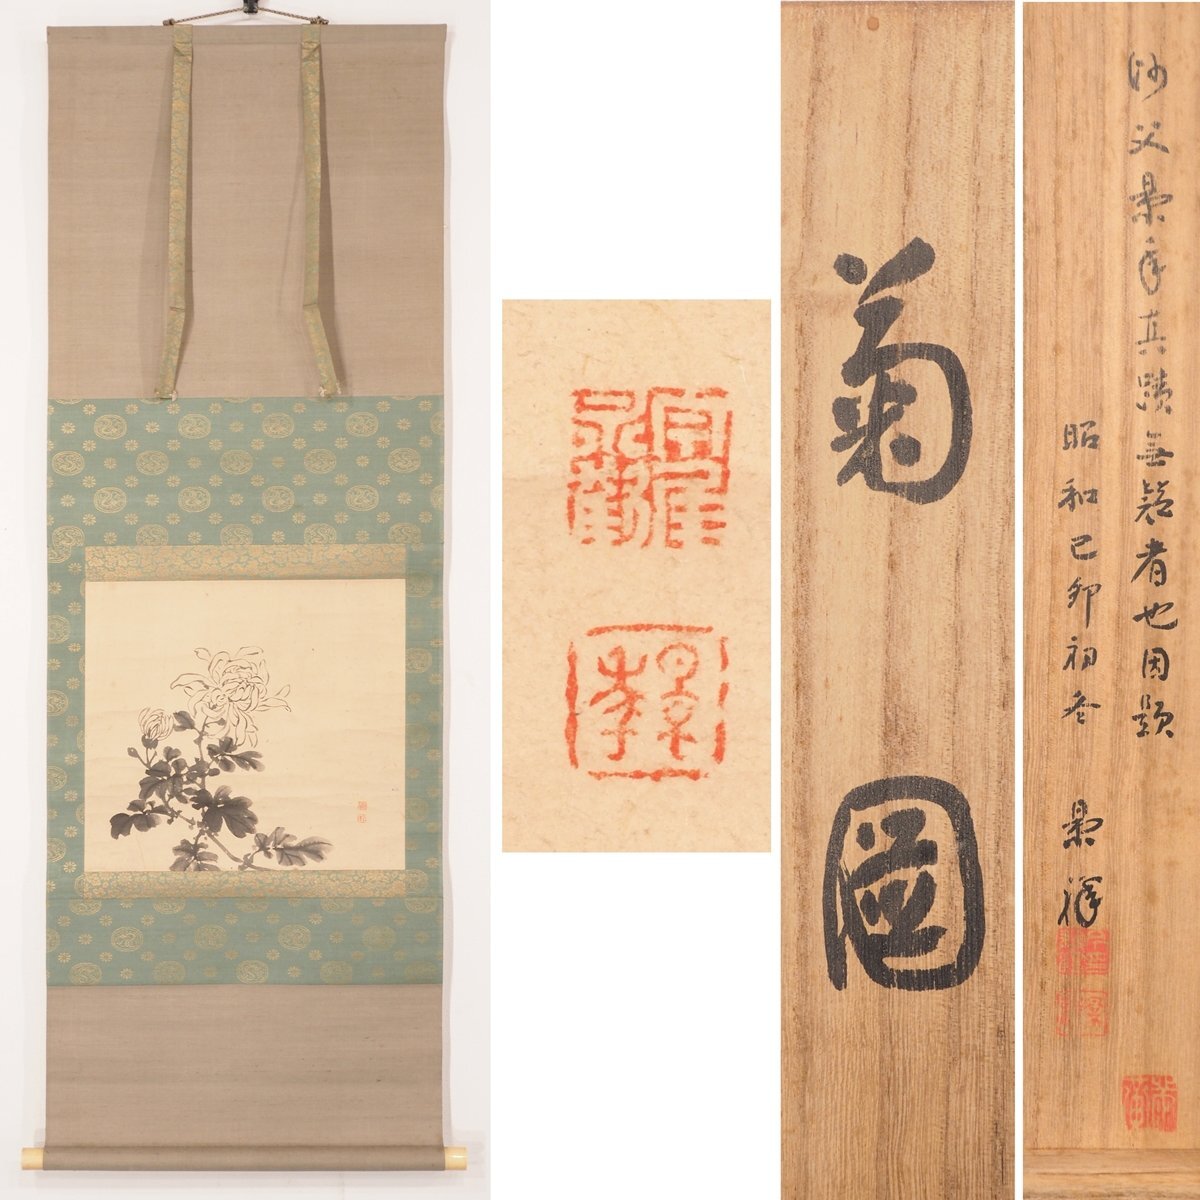 菊圖
父景年真蹟無疑者也因題
昭和己卯初冬 景祥
景年